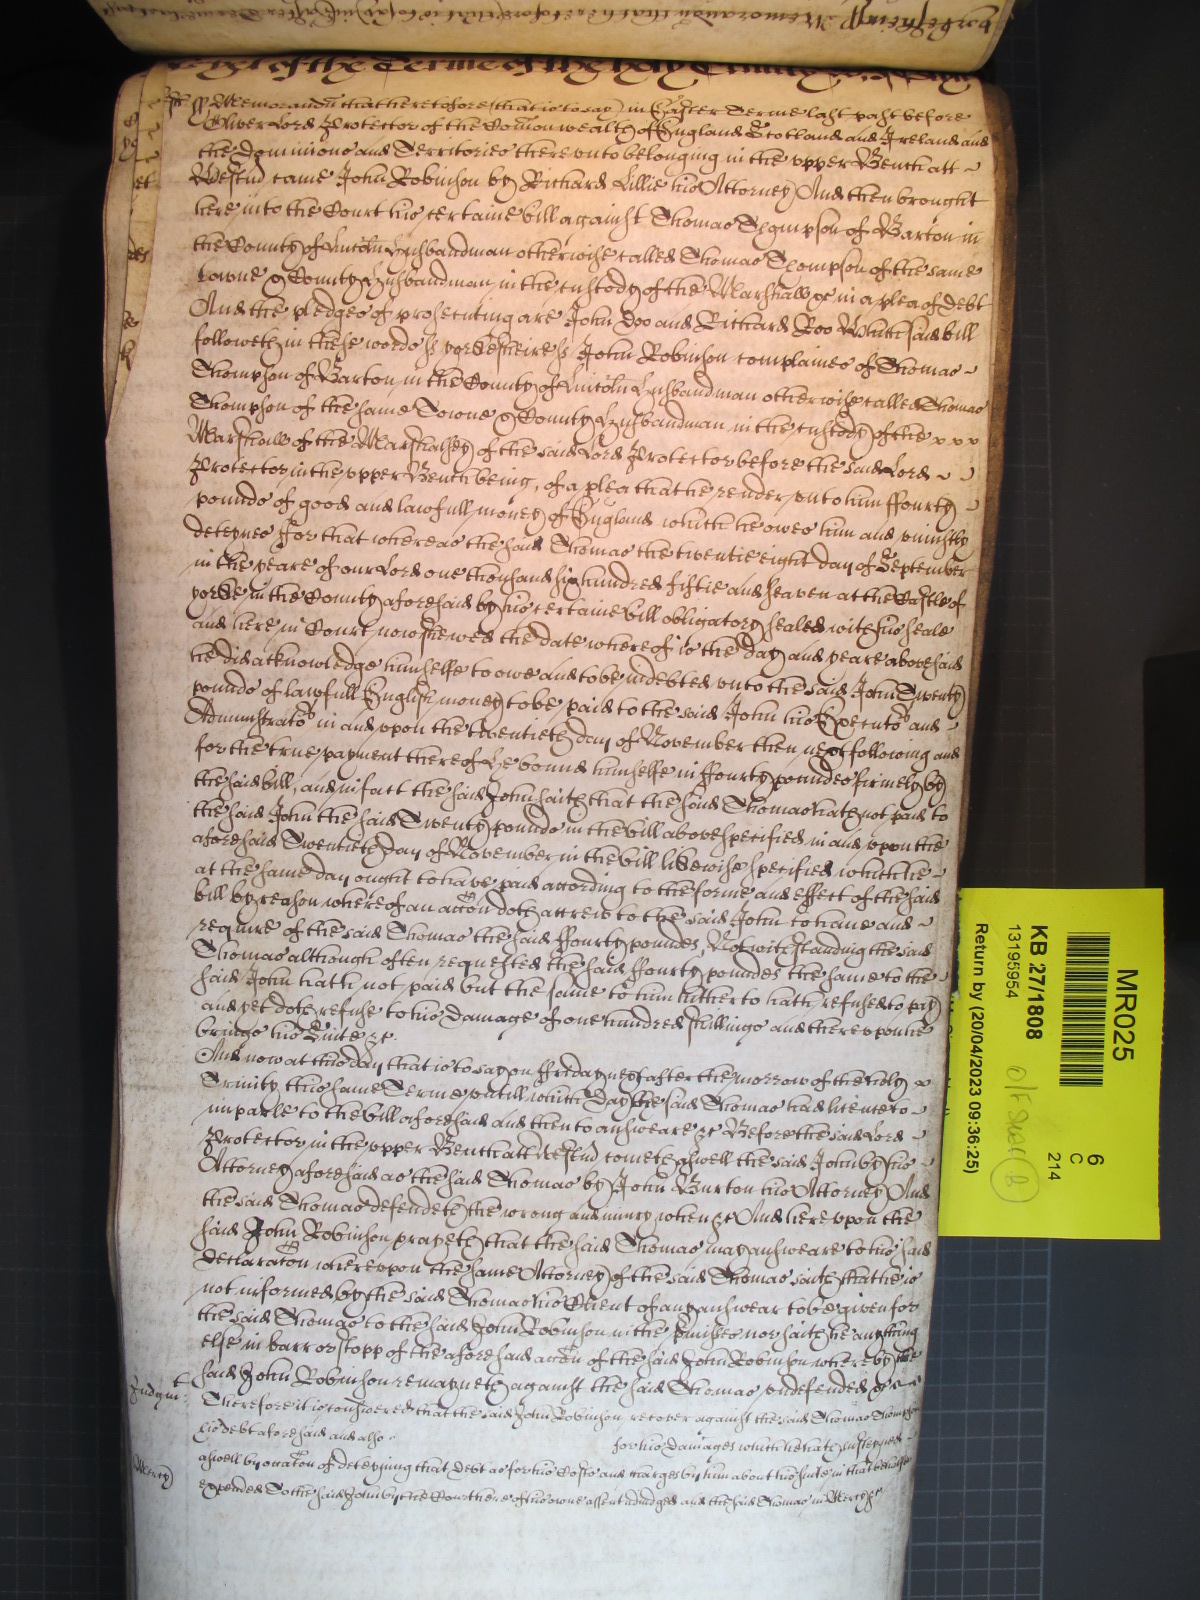 yet of the Terme of the holy Trinity
ss Memorand that heretofore (that is to say) in Easter Terme last past before
Oliver Lord Protector of the Comonwealth of England Scotland and Ireland and
the dominions and Territories thereunto belonging in the upper Bench att
Westmr came John Robinson by Richard Lillie his Attorney And then brought
here into the Court his certaine bill against Thomas Thompson of Barton in
the County of Lincoln husbandman otherwise called Thomas Thompson of the same
towne & County husbandman in the custody of the Marshall &c in a plea of debt
And the pledges of prosecuting are John Doo and Richard Roo Which said bill
followeth in these words ss Yorkesheire ss John Robinson complaines of Thomas
Thompson of Barton in the County of Lincoln husbandman otherwise called Thomas
Thompson of the same Towne & County husbandman in the custody of the
Marshall of the Marshalsey of the said Lord Protector before the said Lord
Protector in the upper Bench being, of a plea that he render unto him ffourty
pounds of good and lawfull money of England which he owes him and uniustly
deteynes ffor that whereas the said Thomas the twentie eight day of September
in the yeare of our Lord one thousand six hundred fiftie and seaven at the Castle of
yorke in the County aforesaid by his certaine bill obligatory sealed with his seale
and here in Court now shewed the date whereof is the day and yeare abovesaid
he did acknowledge himselfe to owe and to be indebted unto the said John Twenty
pounds of lawfull English money to be paid to the said John his Executors and
Administrators in and upon the twentieth day of November then next following and
for the true payment thereof he bound himselfe in ffourty poundes firmely by
the said bill, and in fact the said John saith that the said Thomas hath not paid to
the said John the said Twenty pounds in the bill above specified in and upon the
aforesaid Twentieth day of November in the bill likewise specified which he
at the same day ought to have paid according to the forme and effect of the said
bill by reason whereof an accon doth accrew to the said John to have and
require of the said Thomas the said ffourty poundes, Notwithstanding the said
Thomas although often requested the said ffourty poundes the same to the
said John hath not paid but the same to him hitherto hath refused to pay
and yet doth refuse to his damage of one hundred shillings and thereupon he
brings his Suite &c.
And now at this day that is to say on ffriday next after the morrow of the holy
Trinity this same Terme untill which day the said Thomas had licence to
imparle to the bill aforesaid and then to answeare &c Before the said Lord
Protector in the upper Bench att Westmr cometh aswell the said John by his
Attorney aforesaid as the said Thomas by John Burton his Attorney And
the said Thomas defendeth the wrong and iniury when &c And hereupon the
said John Robinson prayeth that the said Thomas may answeare to his said
declaracon whereupon the same Attorney of the said Thomas saith that he is
not informed by the said Thomas his Client of any answear to be given for
the said Thomas to the said John Robinson in the pmisses nor saith he anything
else in barr or stopp of the aforesaid accon of the said John Robinson whereby the
said John Robinson remayneth against the said Thomas undefended &c
Judgmt
Therefore it is considered that the said John Robinson recover against the said Thomas Thompson
his debt aforesaid and also for his damages which he hath susteyned
Mercy
aswell by occasion of deteyning that debt as for his Costs and charges by him about his suite in that behalfe
expended to the said John by the Court here of his owne assent adiudged and the said Thomas in Mercy &c
MR025
KB 27/1808
13195954
Return by (20/04/2023 09:36:25)
6
C
214